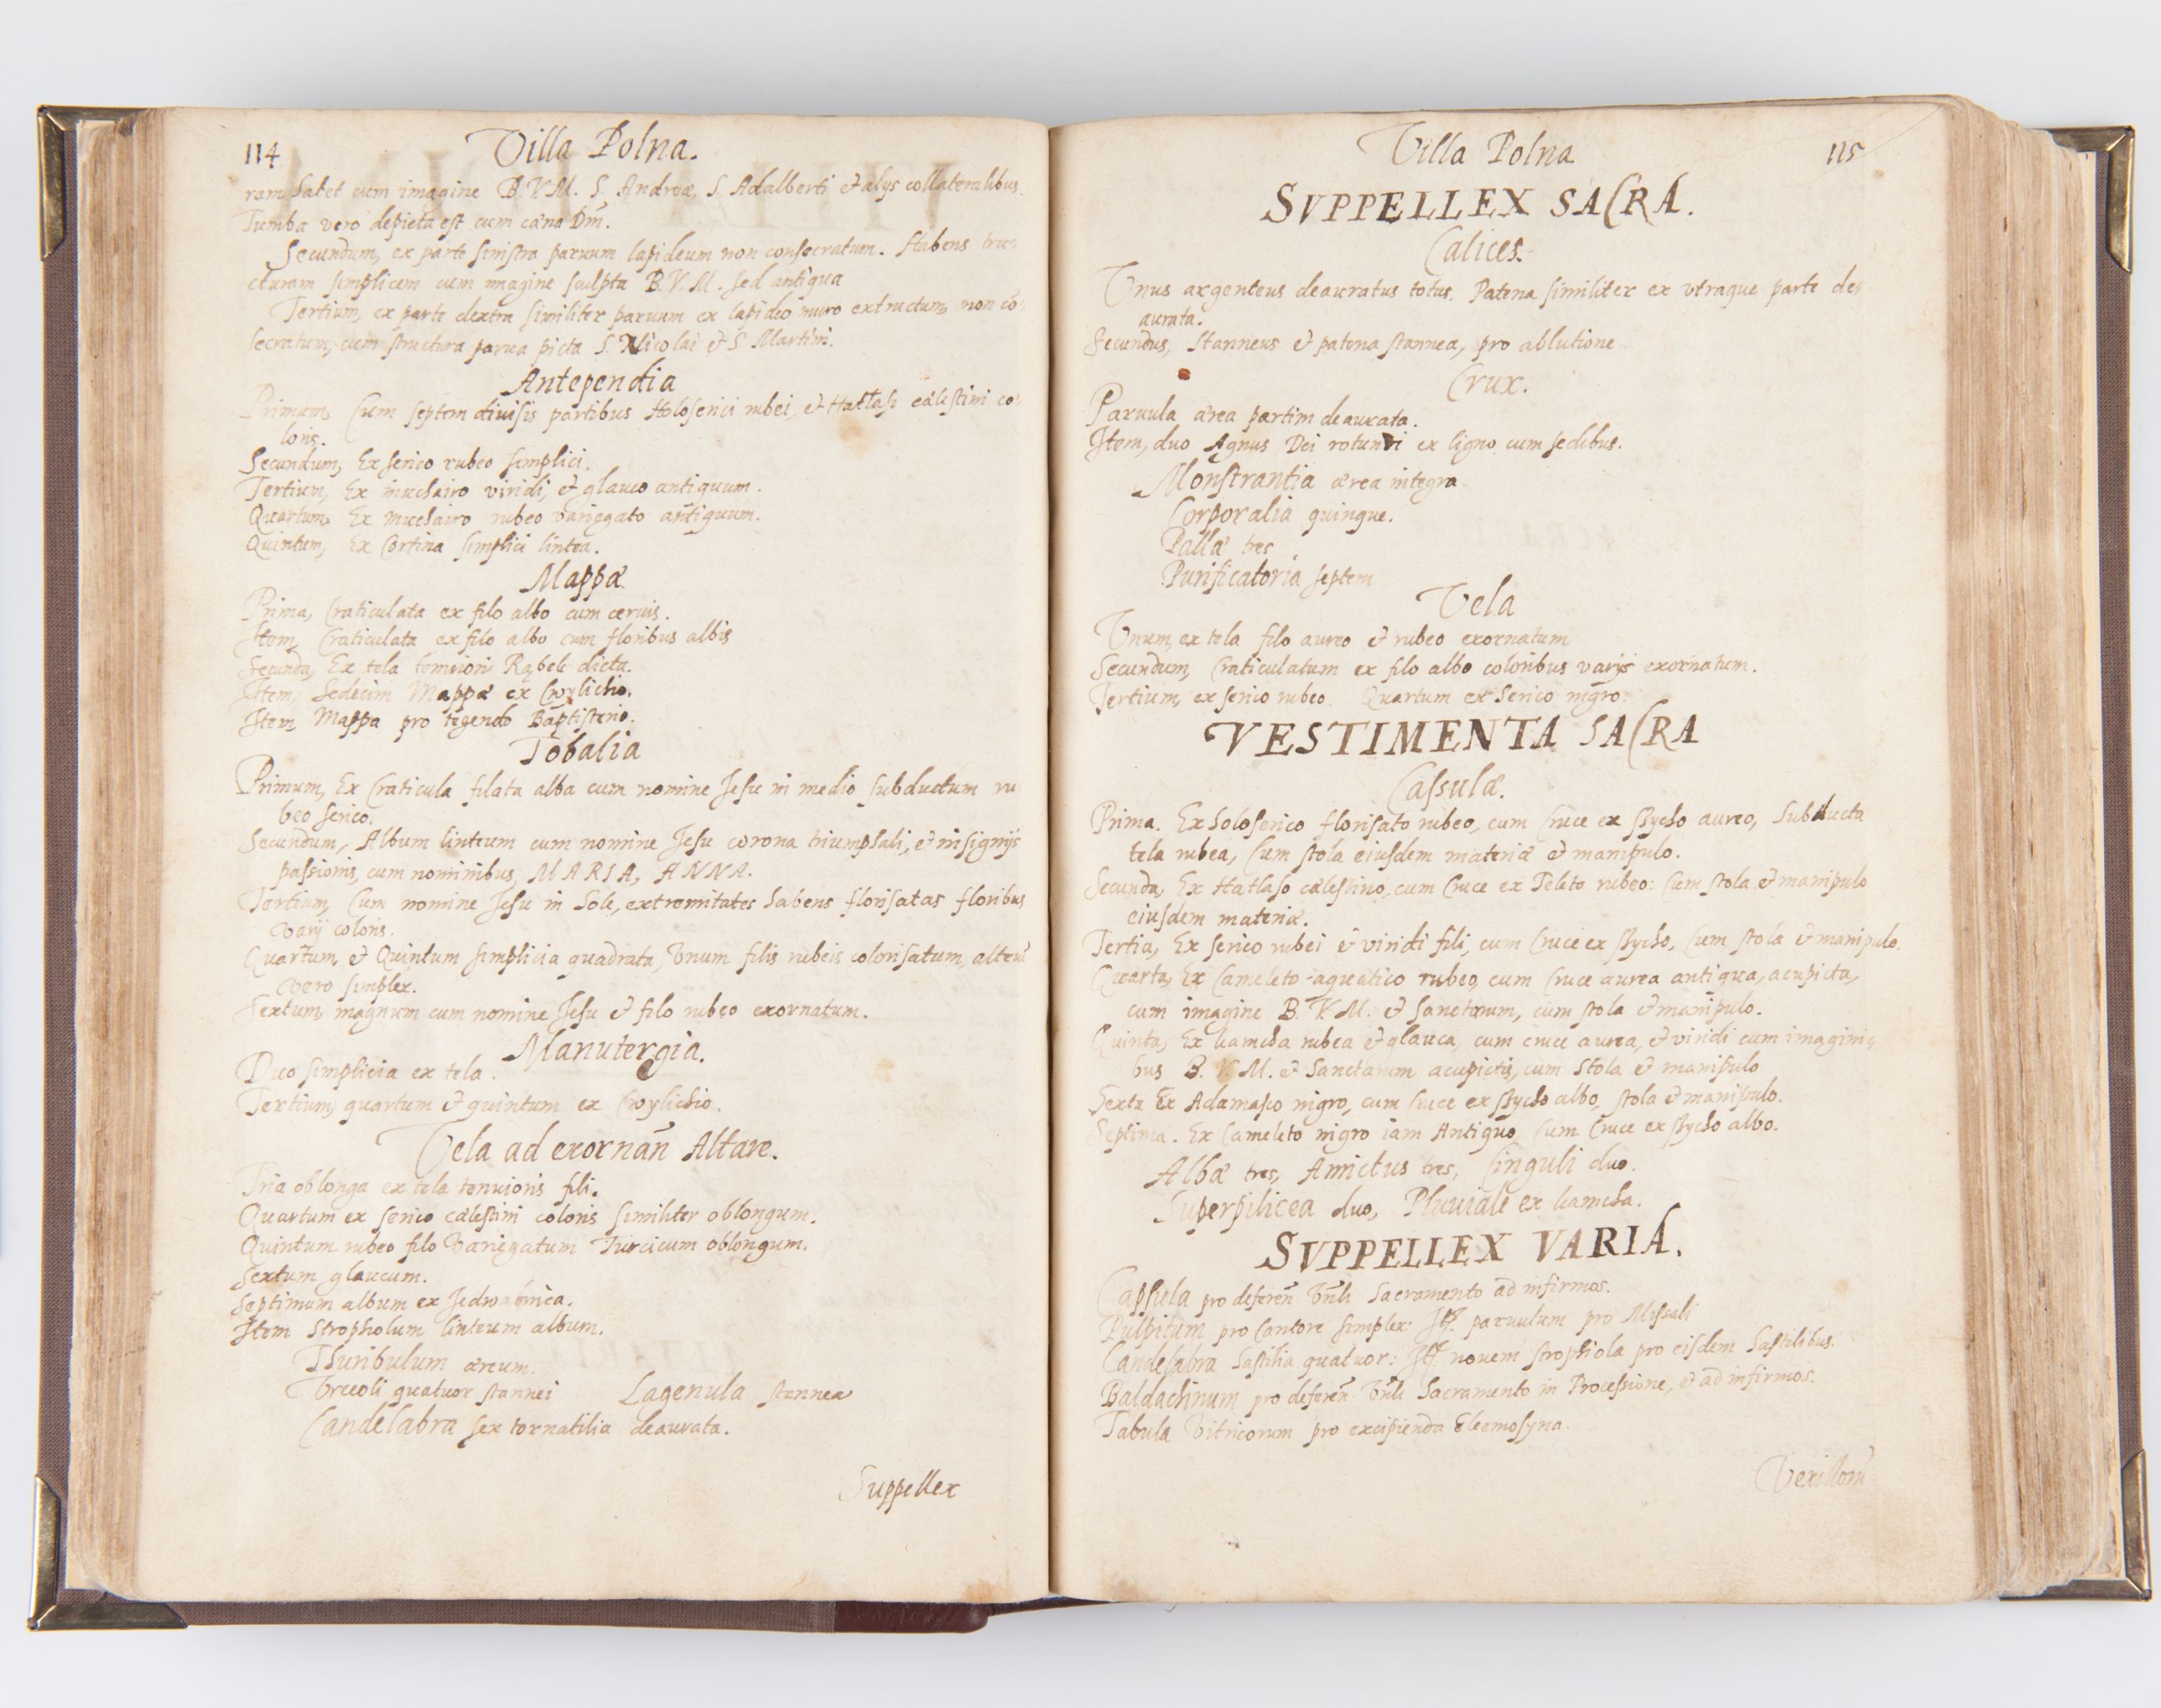 114 Villa Polna.
ram habet cum imagine B. V. M. S. Andreæ, S. Adalberti et alys collateralibus.
Tumba vero depicta est cum cæna Dm̃.
Secundum, ex parte sinistra paruum lapideum non consecratum. Habens stru-
cturam simplicem cum imagine sculpta B. V. M. sed antiqua
Tertium, ex parte dextra similiter paruum ex lapideo muro extructum, non cō-
secratum, cum structura parua picta S. Nicolai et S. Martini.
Antependia
Primum, Cum septem diuisis partibus Holoserici rubei, et Hatłasi cælestini co-
loris.
Secundum, Ex serico rubeo simplici.
Tertium, Ex muchairo viridi, et glauco antiquum.
Quartum, Ex muchairo rubeo variegato antiquum.
Quintum, Ex Cortina simplici lintea.
Mappæ
Prima, Craticulata ex filo albo cum ceruis.
Item, Craticulata ex filo albo cum floribus albis
Secunda, Ex tela tenuiori Rąbek dicta.
Item, Sedecim Mappæ ex Cwylichio.
Item, Mappa pro tegendo Baptisterio.
Tobalia
Primum, Ex Craticula filata alba cum nomine Jesu in medio subductum ru
beo serico.
Secundum, Album linteum cum nomine Jesu corona triumphali, et insignijs
passionis, cum nominibus, MARIA, ANNA.
Tertium, Cum nomine Jesu in Sole, extremitates habens florisatas floribus
varij coloris.
Quartum, et Quintum simplicia quadrata, Vnum filis rubeis colorisatum, alterũ
vero simplex.
Sextum, magnum cum nomine Jesu et filo rubeo exornatum.
Manutergia.
Duo simplicia ex tela.
Tertium, quartum et quintum ex Cwylichio.
Vela ad exornañ Altare.
Tria oblonga ex tela tenuioris fili.
Quartum ex serico cælestini coloris similiter oblongum.
Quintum rubeo filo variegatum Turcicum oblongum.
Sextum glaucum.
Septimum album ex Jedwabnica.
Item Stropholum linteum album.
Thuribulum æreum.
Vrceoli quatuor stannei Lagenula stannea
Candelabra sex tornatilia deaurata.
Suppellex
Villa Polna 115
SVPPELLEX SACRA.
Calices.
Vnus argenteus deauratus totus. Patena similiter ex vtraque parte de-
aurata.
Secundus, Stanneus et patena stannea, pro ablutione
Crux.
Paruula ærea partim deaurata.
Item, duo Agnus Dei rotundi ex ligno cum sedibus.
Monstrantia ærea integra
Corporalia quinque.
Pallæ tres
Purificatoria septem
Vela
Vnum, ex tela filo aureo et rubeo exornatum
Secundum, Craticulatum ex filo albo coloribus varijs exornatum.
Tertium, ex serico rubeo. Quartum ex Serico nigro.
VESTIMENTA SACRA
Casulæ.
Prima. Ex holoserico florisato rubeo, cum Cruce ex sstycho aureo, Subducta
tela rubea, Cum stola eiusdem materiæ et manipulo.
Secunda, Ex Hatłaso cælestino, cum Cruce ex Teleto rubeo: Cum stola et manipulo
eiusdem materiæ.
Tertia, Ex serico rubei et viridi fili, cum Cruce ex sstycho, Cum stola et manipulo.
Quarta, Ex Cameleto aquatico rubeo, cum Cruce aurea antiqua, acupicta,
cum imagine B. V. M. et Sanctorum, cum stola et manipulo.
Quinta, Ex kamcha rubea et glauca, cum cruce aurea, et viridi cum imagini-
bus B. V. M. et Sanctarum acupictis, cum Stola et manipulo
Sexta Ex Adamasco nigro, cum cruce ex sstycho albo, stola et manipulo.
Septima. Ex Cameleto nigro iam Antiquo, Cum Cruce ex sstycho albo.
Albæ tres, Amictus tres, Cinguli duo.
Superpilicea duo, Pluuiale ex kamcha.
SVPPELLEX VARIA.
Capsula pro deferen̄ Vñli Sacramento ad infirmos.
Pulpitum pro Cantore simplex. It. paruulum pro Missali
Candelabra hastilia quatuor: It. nouem strophiola pro eisdem hastilibus.
Baldachinum pro deferen̄ Vñli Sacramento in Processione, et ad infirmos.
Tabula Vitricorum pro excipienda Eleemosyna.
Vexillorũ